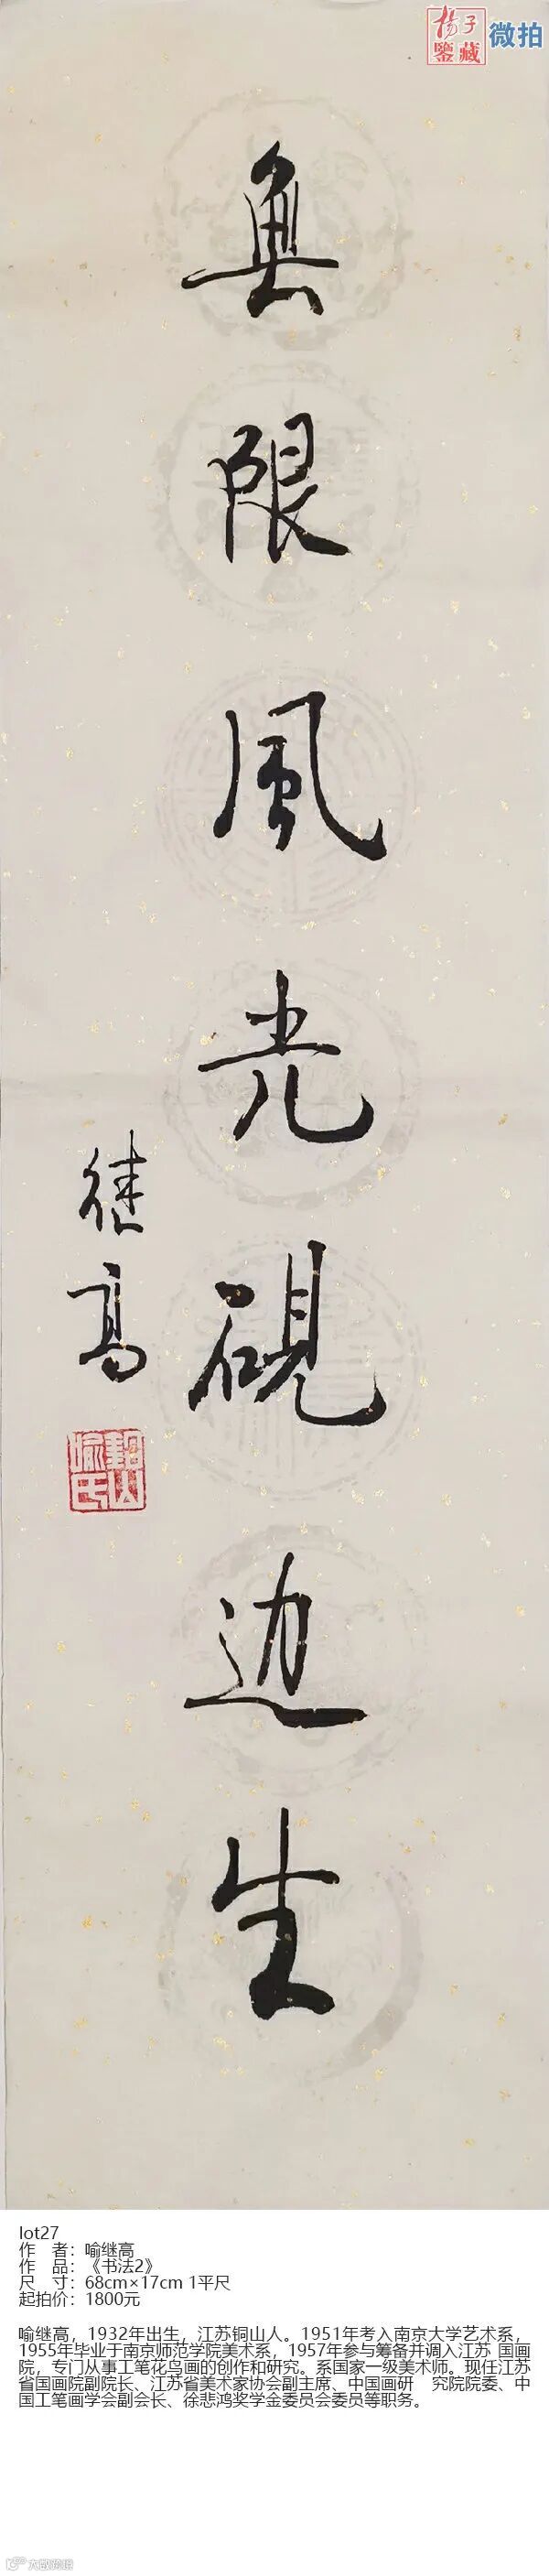 扬子
鑒藏
微拍
無限風光硯边生
继高
lot27
作 者：喻继高
作 品：《书法2》
尺 寸：68cm×17cm 1平尺
起拍价：1800元
喻继高，1932年出生，江苏铜山人。1951年考入南京大学艺术系，
1955年毕业于南京师范学院美术系，1957年参与筹备并调入江苏 国画
院，专门从事工笔花鸟画的创作和研究。系国家一级美术师。现任江苏
省国画院副院长、江苏省美术家协会副主席、中国画研 究院院委、中
国工笔画学会副会长、徐悲鸿奖学金委员会委员等职务。